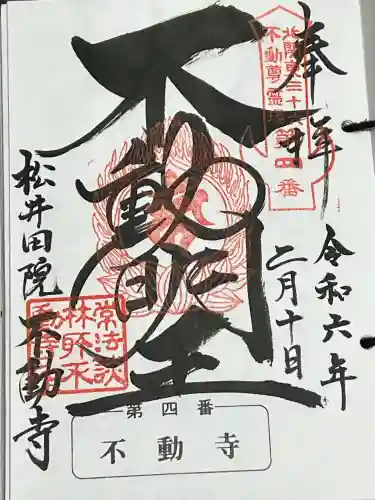 奉拝
北関東三十六
不動尊霊場
第四番
令和六年
二月十日
不動明王
松井田院 不動寺
常法談
林
第四番
不動寺